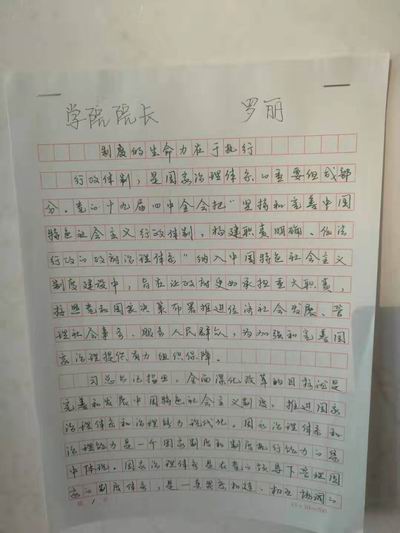 学院院长 罗丽
制度的生命力在于执行
行政体制，是国家治理体系的重要组成部
分。党的十九届四中全会把“坚持和完善中国
特色社会主义行政体制，构建职责明确、依法
行政的政府治理体系”纳入中国特色社会主义
制度建设中，旨在让政府更好承担重大职责，
按照党和国家决策布署推进经济社会发展、管
理社会事务、服务人民群众，为加强和完善国
家治理提供有力组织保障。
习总书记指出，全面深化改革的目标就是
完善和发展中国特色社会主义制度，推进国家
治理体系和治理能力现代化。国家治理体系和
治理能力是一个国家制度和制度执行能力的集
中体现。国家治理体系是在党的领导下管理国
家的制度体系，是一套紧密相连、相互协调的